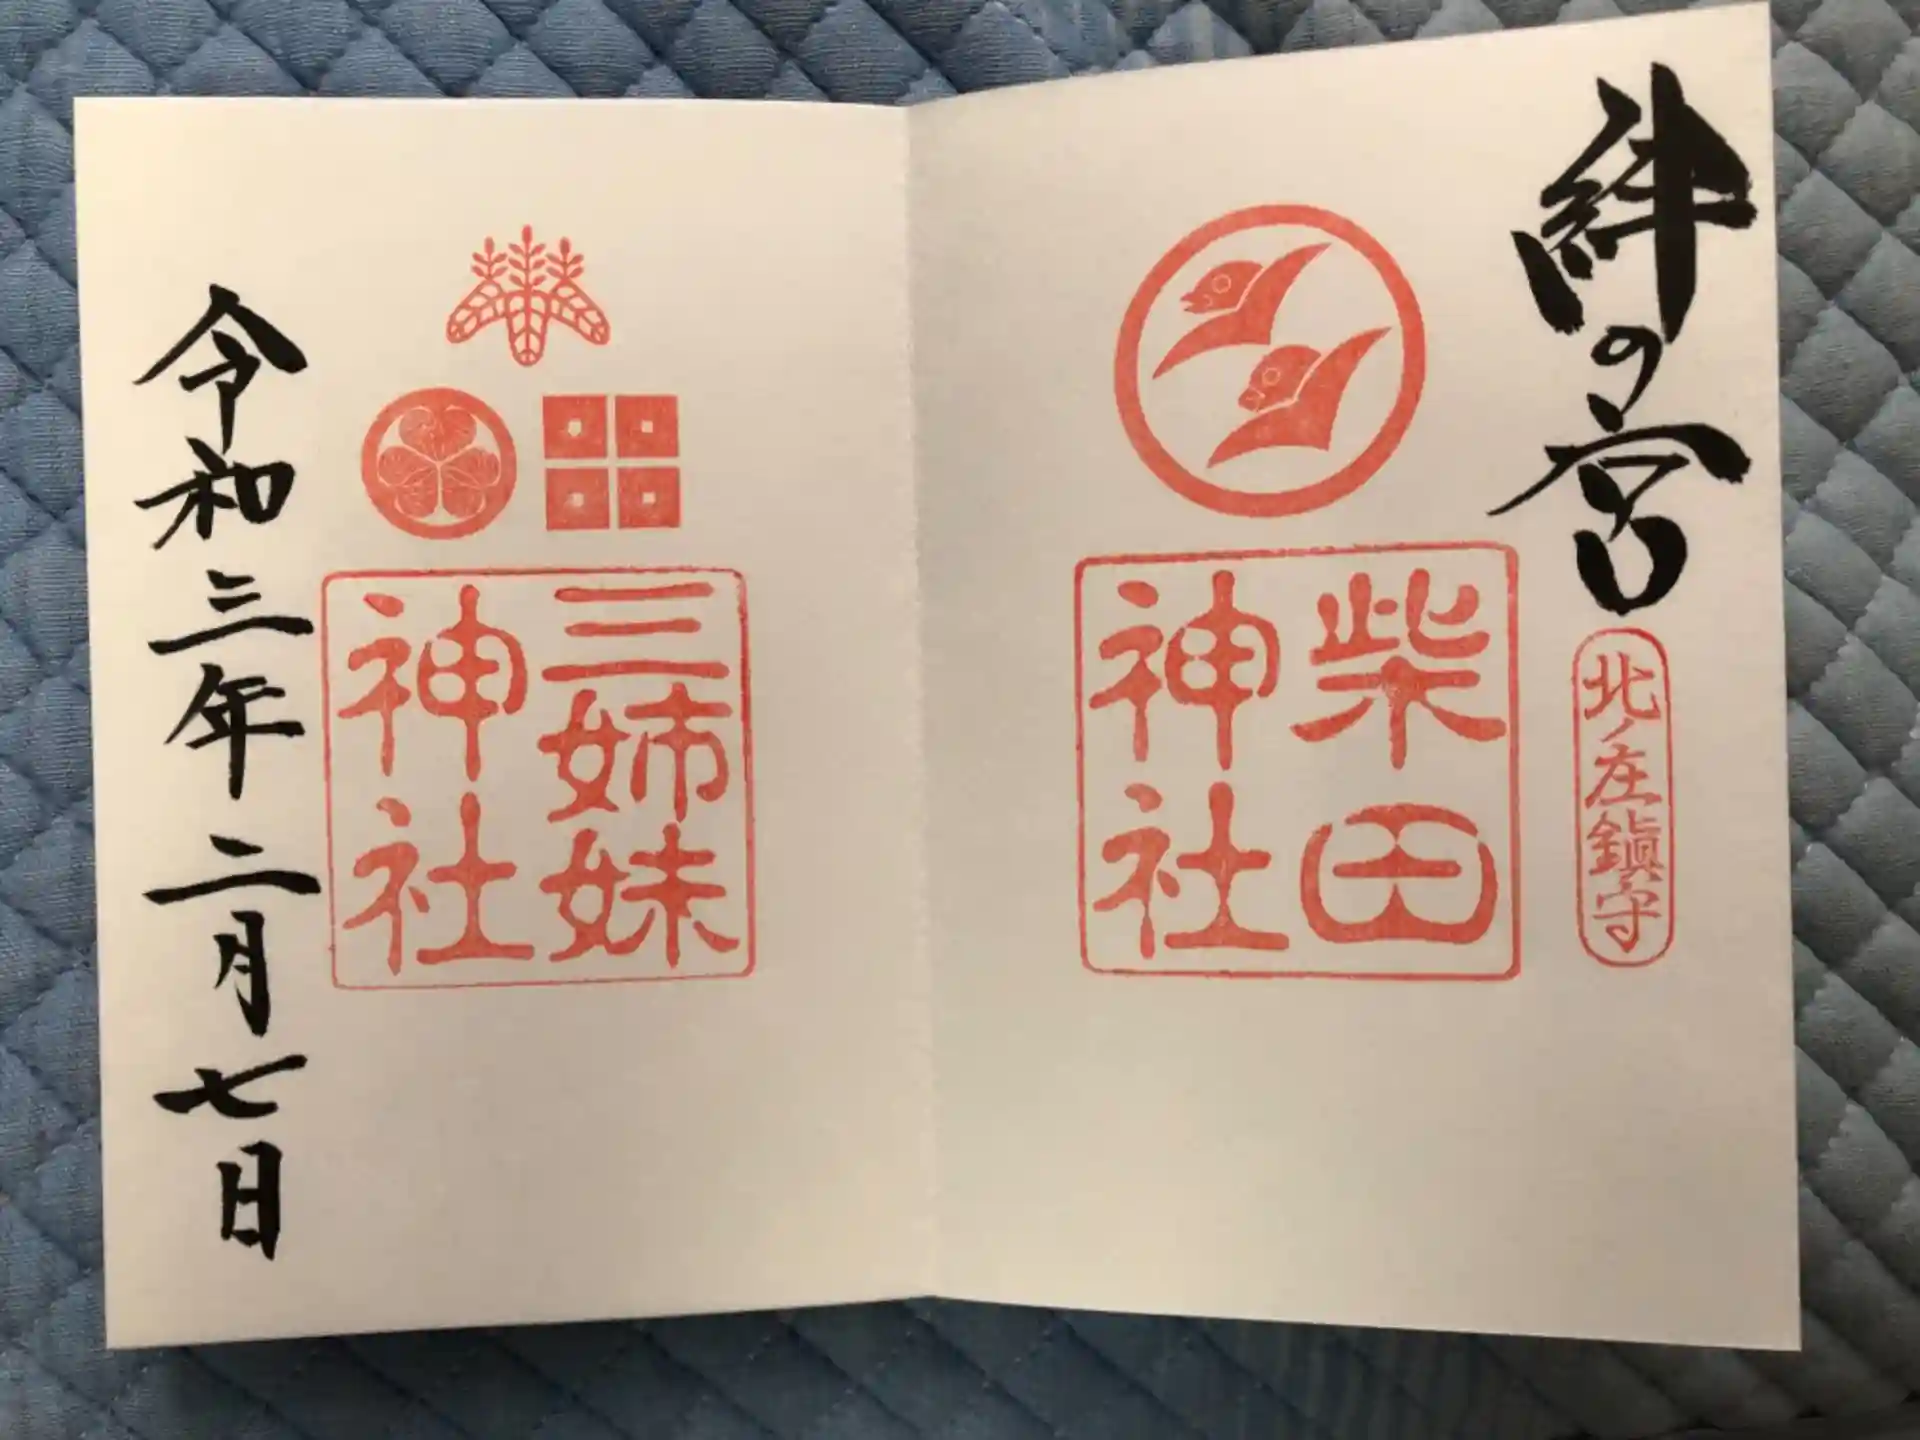 絆の宮
北ノ庄鎮守
柴田
神社
三姉妹
神社
令和三年二月七日